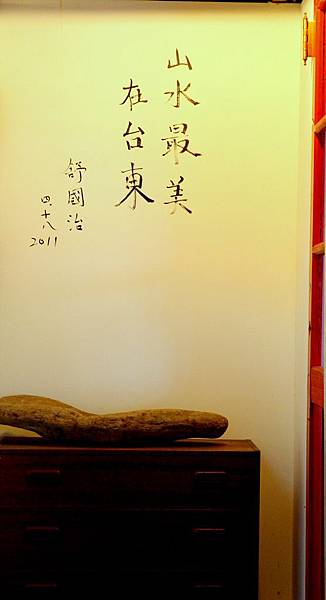 山水最美
在台東
舒國治
四.十八
2011